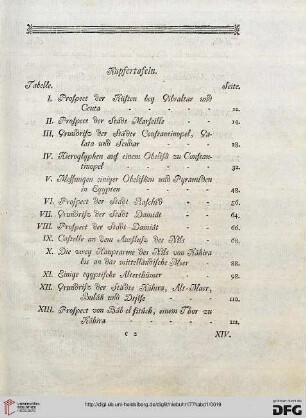 Kupfertafeln.
Tabelle. Seite.
I. Prospect der Küsten bey Gibraltar und
Ceuta - - - 12.
II. Prospect der Stadt Marseille - - 19.
III. Grundriß der Städte Constantinopel, Ga-
lata und Scudar - - - 28.
IV. Hieroglyphen auf einem Obelisk zu Constan-
tinopel - - - 32.
V. Messungen einiger Obelisken und Pyramiden
in Egypten - - - 48.
VI. Prospect der Stadt Raschîd - - 56.
VII. Grundriß der Stadt Damiât - - 64.
VIII. Prospect der Stadt Damiât - - 66.
IX. Castelle an dem Ausflusse des Nils - 69.
X. Die zwey Hauptarme des Nils von Káhira
bis an das mittelländische Meer - 88.
XI. Einige egyptische Alterthümer - - 98.
XII. Grundriß der Städte Káhira, Alt-Masr,
Bulák und Dsjise - - 110.
XIII. Prospect von Bâb el fitúch, einem Thor zu
Káhira - - - 112.
c 2 XIV.
http://digi.ub.uni-heidelberg.de/diglit/niebuhr1774abd1/0019
UNIVERSITÄTS-
BIBLIOTHEK
HEIDELBERG